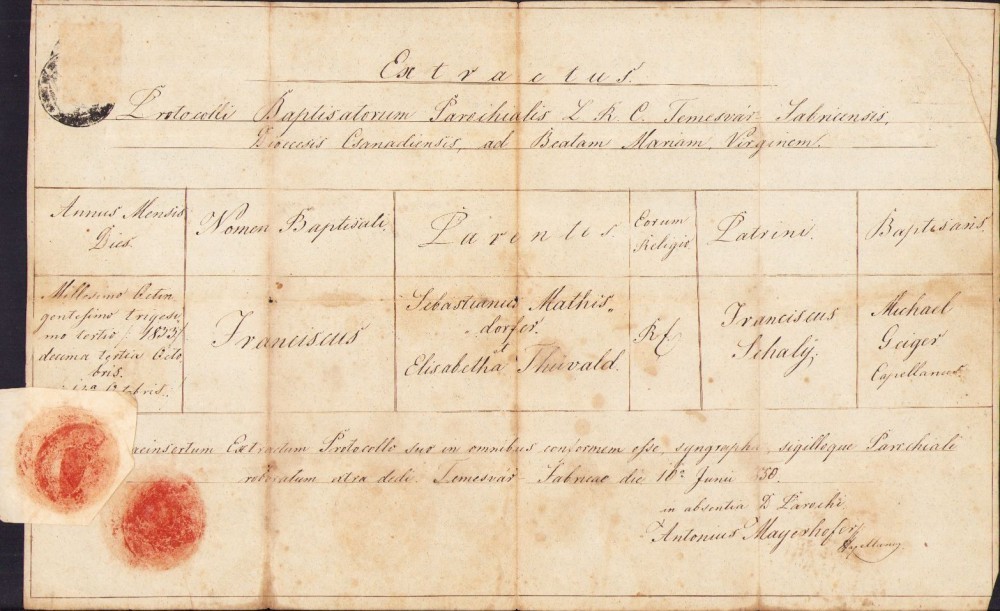 Extractus.
Protocolli Baptisatorum Parochialis L. R. C. Temesvár Fabricensis,
Dioecesis Csanadiensis, ad Beatam Mariam Virginem.
Annus Mensis
Dies.
Nomen Baptisati
Parentes.
Eorum
Religio
Patrini
Baptisans.
Millesimo Octin
gentesimo trigesi
mo tertio /: 1833/
decima tertia Octo
bris.
Franciscus
Sebastianus Mathis„
dorfer.
et
Elisabetha Thúvald.
R. C.
Franciscus
Schaly;
Michael
Geiger
Capellanus.
Extractum Protocollo suo in omnibus conformem esse, syngrapha, sigilloque Parochiali
roboratum extra dedi. Temesvár Fabricae die Junii
in absentia D Parochi
Antonius Mayerhofer
Capellanus.